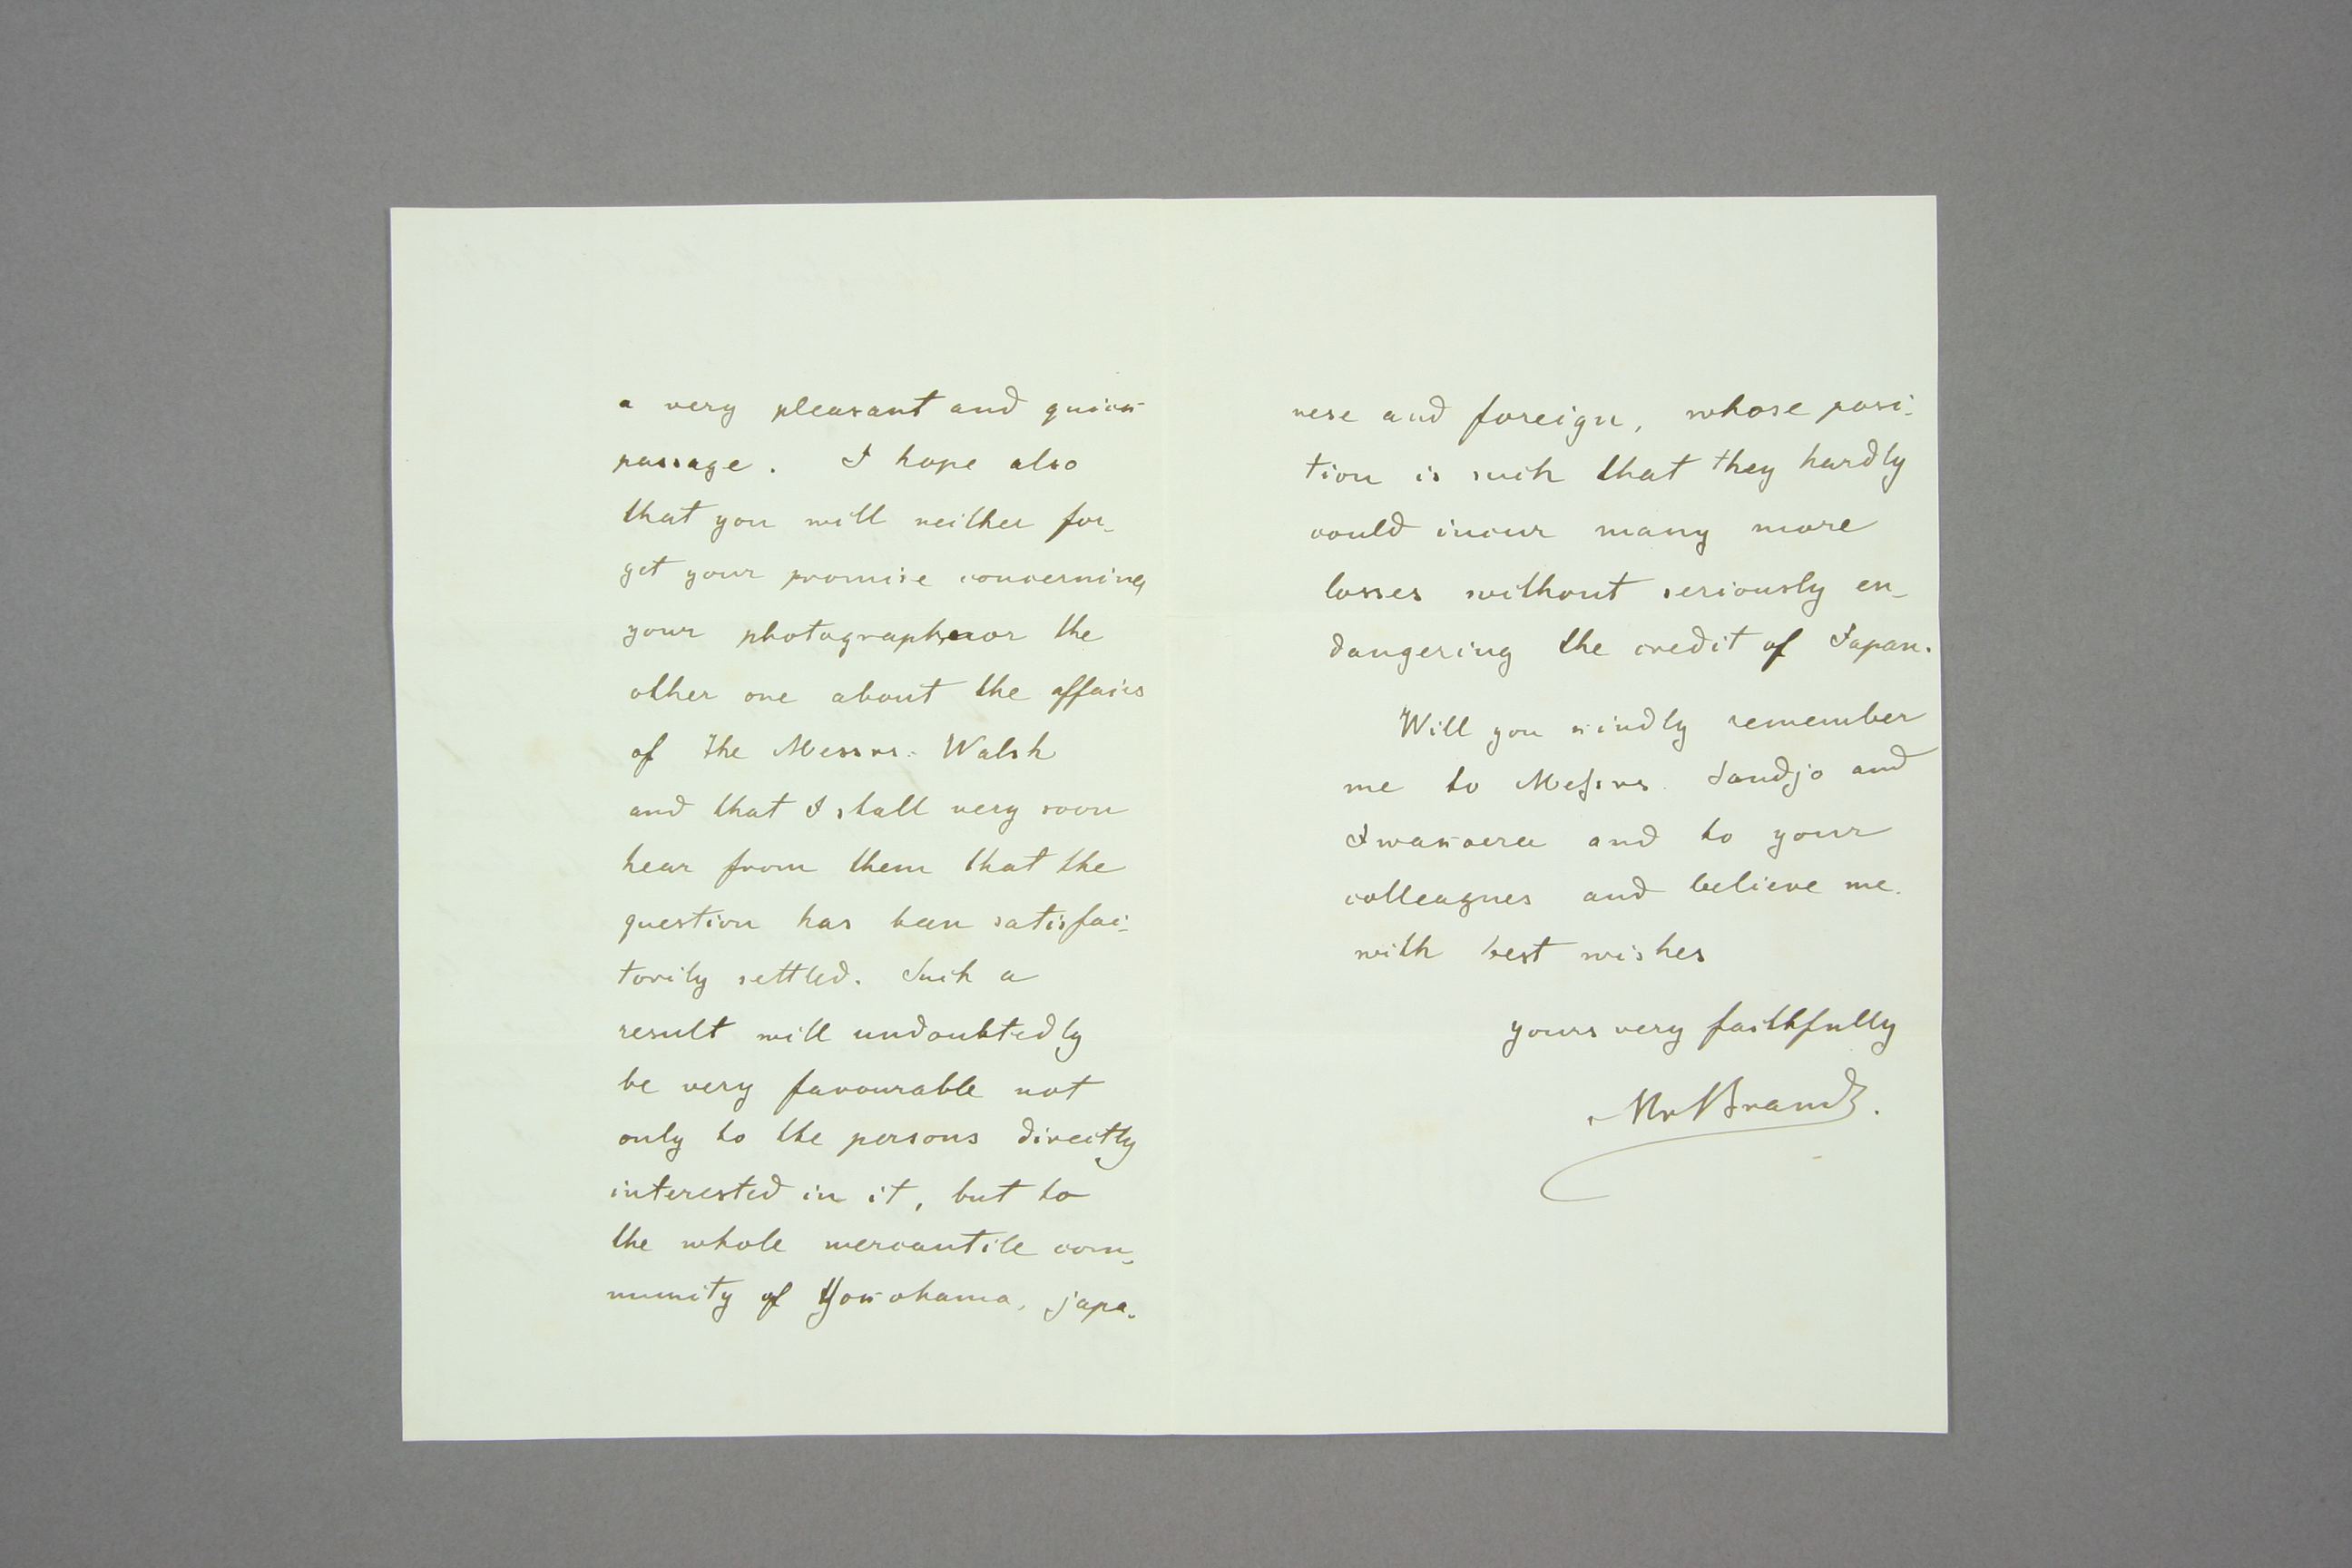 a very pleasant and quick
passage. I hope also
that you will neither for-
get your promise concerning
your photograph nor the
other one about the affairs
of the Messrs. Walsh
and that I shall very soon
hear from them that the
question has been satisfac-
torily settled. Such a
result will undoubtedly
be very favourable not
only to the persons directly
interested in it, but to
the whole mercantile com-
munity of Yokohama, japa-
nese and foreign, whose posi-
tion is such that they hardly
could incur many more
losses without seriously en-
dangering the credit of Japan.
Will you kindly remember
me to Messrs. Sandjo and
Iwakura and to your
colleagues and believe me.
with best wishes
yours very faithfully
MvBrandt.